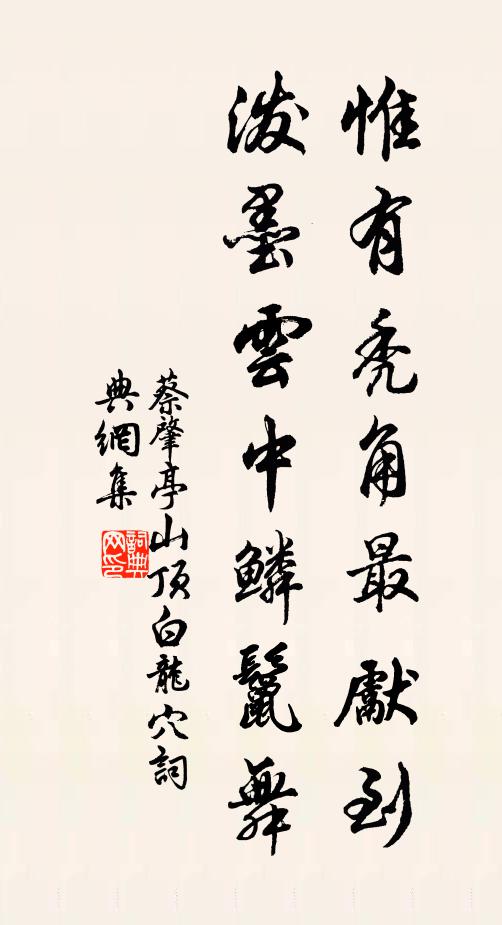 惟有禿角最獻到
潑墨雲中鱗鬣舞
蔡肇亭山頂白龍穴詞
典網集
詞典
网印